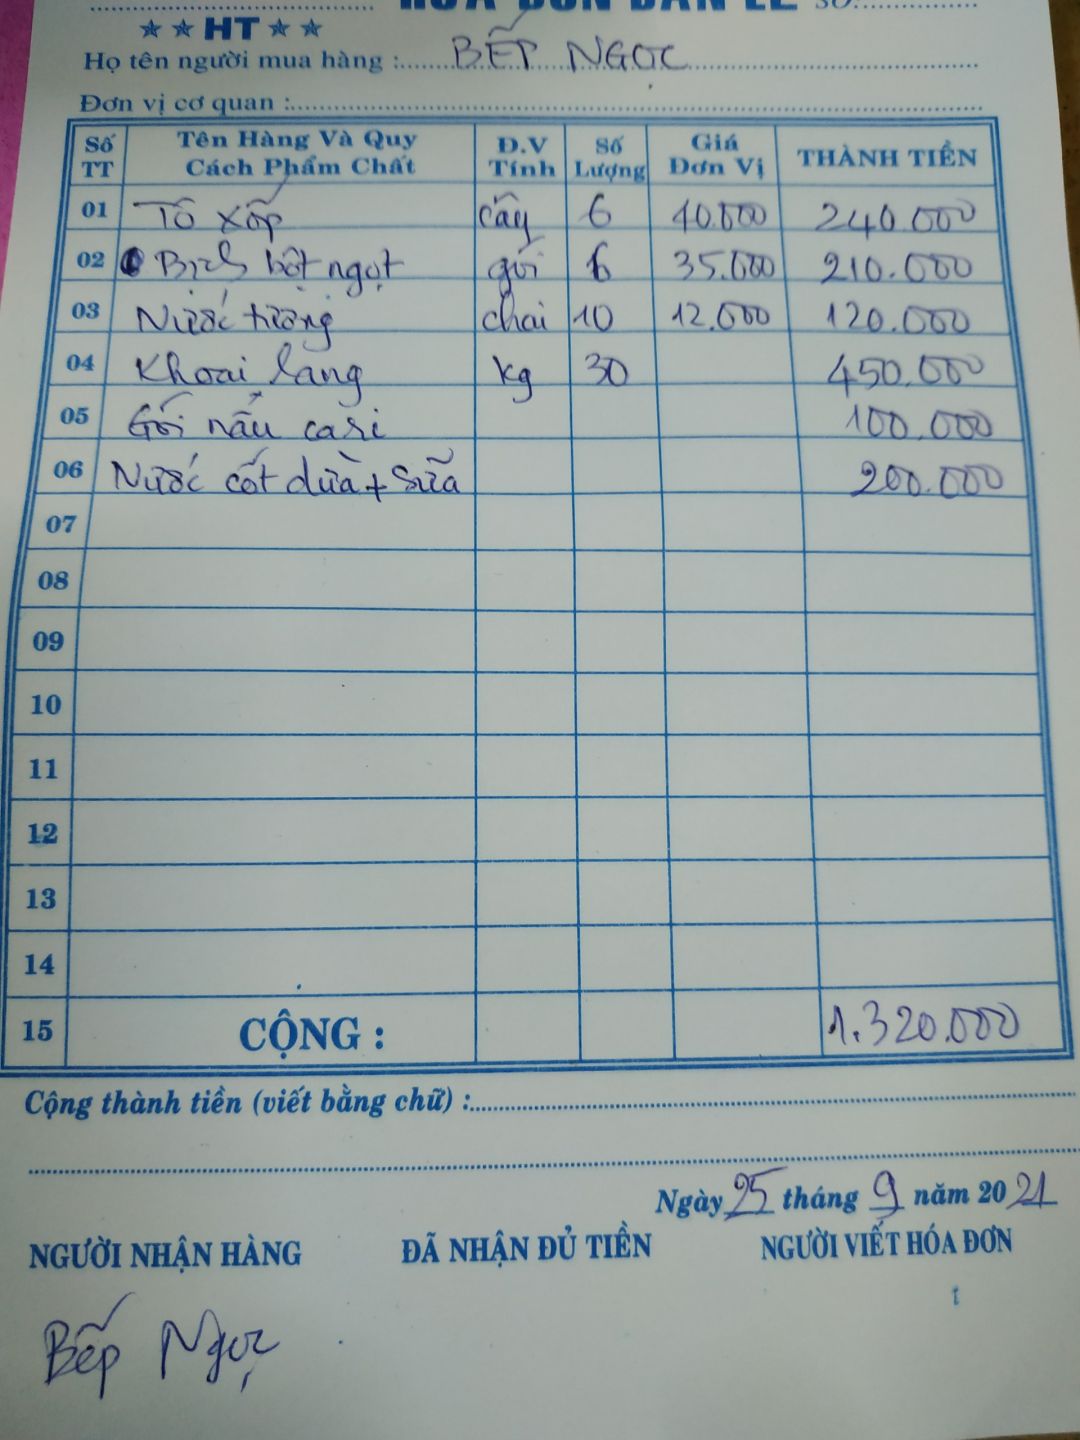 HÓA ĐƠN BÁN LẺ SỐ:
★ ★ HT ★ ★
Họ tên người mua hàng : BẾP NGỌC
Đơn vị cơ quan :
Số TT | Tên Hàng Và Quy Cách Phẩm Chất | Đ.V Tính | Số Lượng | Giá Đơn Vị | THÀNH TIỀN
01 Tô xốp cây 6 40.000 240.000
02 Bịch bột ngọt gói 6 35.000 210.000
03 Nước tương chai 10 12.000 120.000
04 Khoai lang kg 30 450.000
05 Gói nấu cari 100.000
06 Nước cốt dừa + sữa 200.000
07
08
09
10
11
12
13
14
15 CỘNG : 1.320.000
Cộng thành tiền (viết bằng chữ) :
Ngày 25 tháng 9 năm 2021
NGƯỜI NHẬN HÀNG ĐÃ NHẬN ĐỦ TIỀN NGƯỜI VIẾT HÓA ĐƠN
Bếp Ngọc